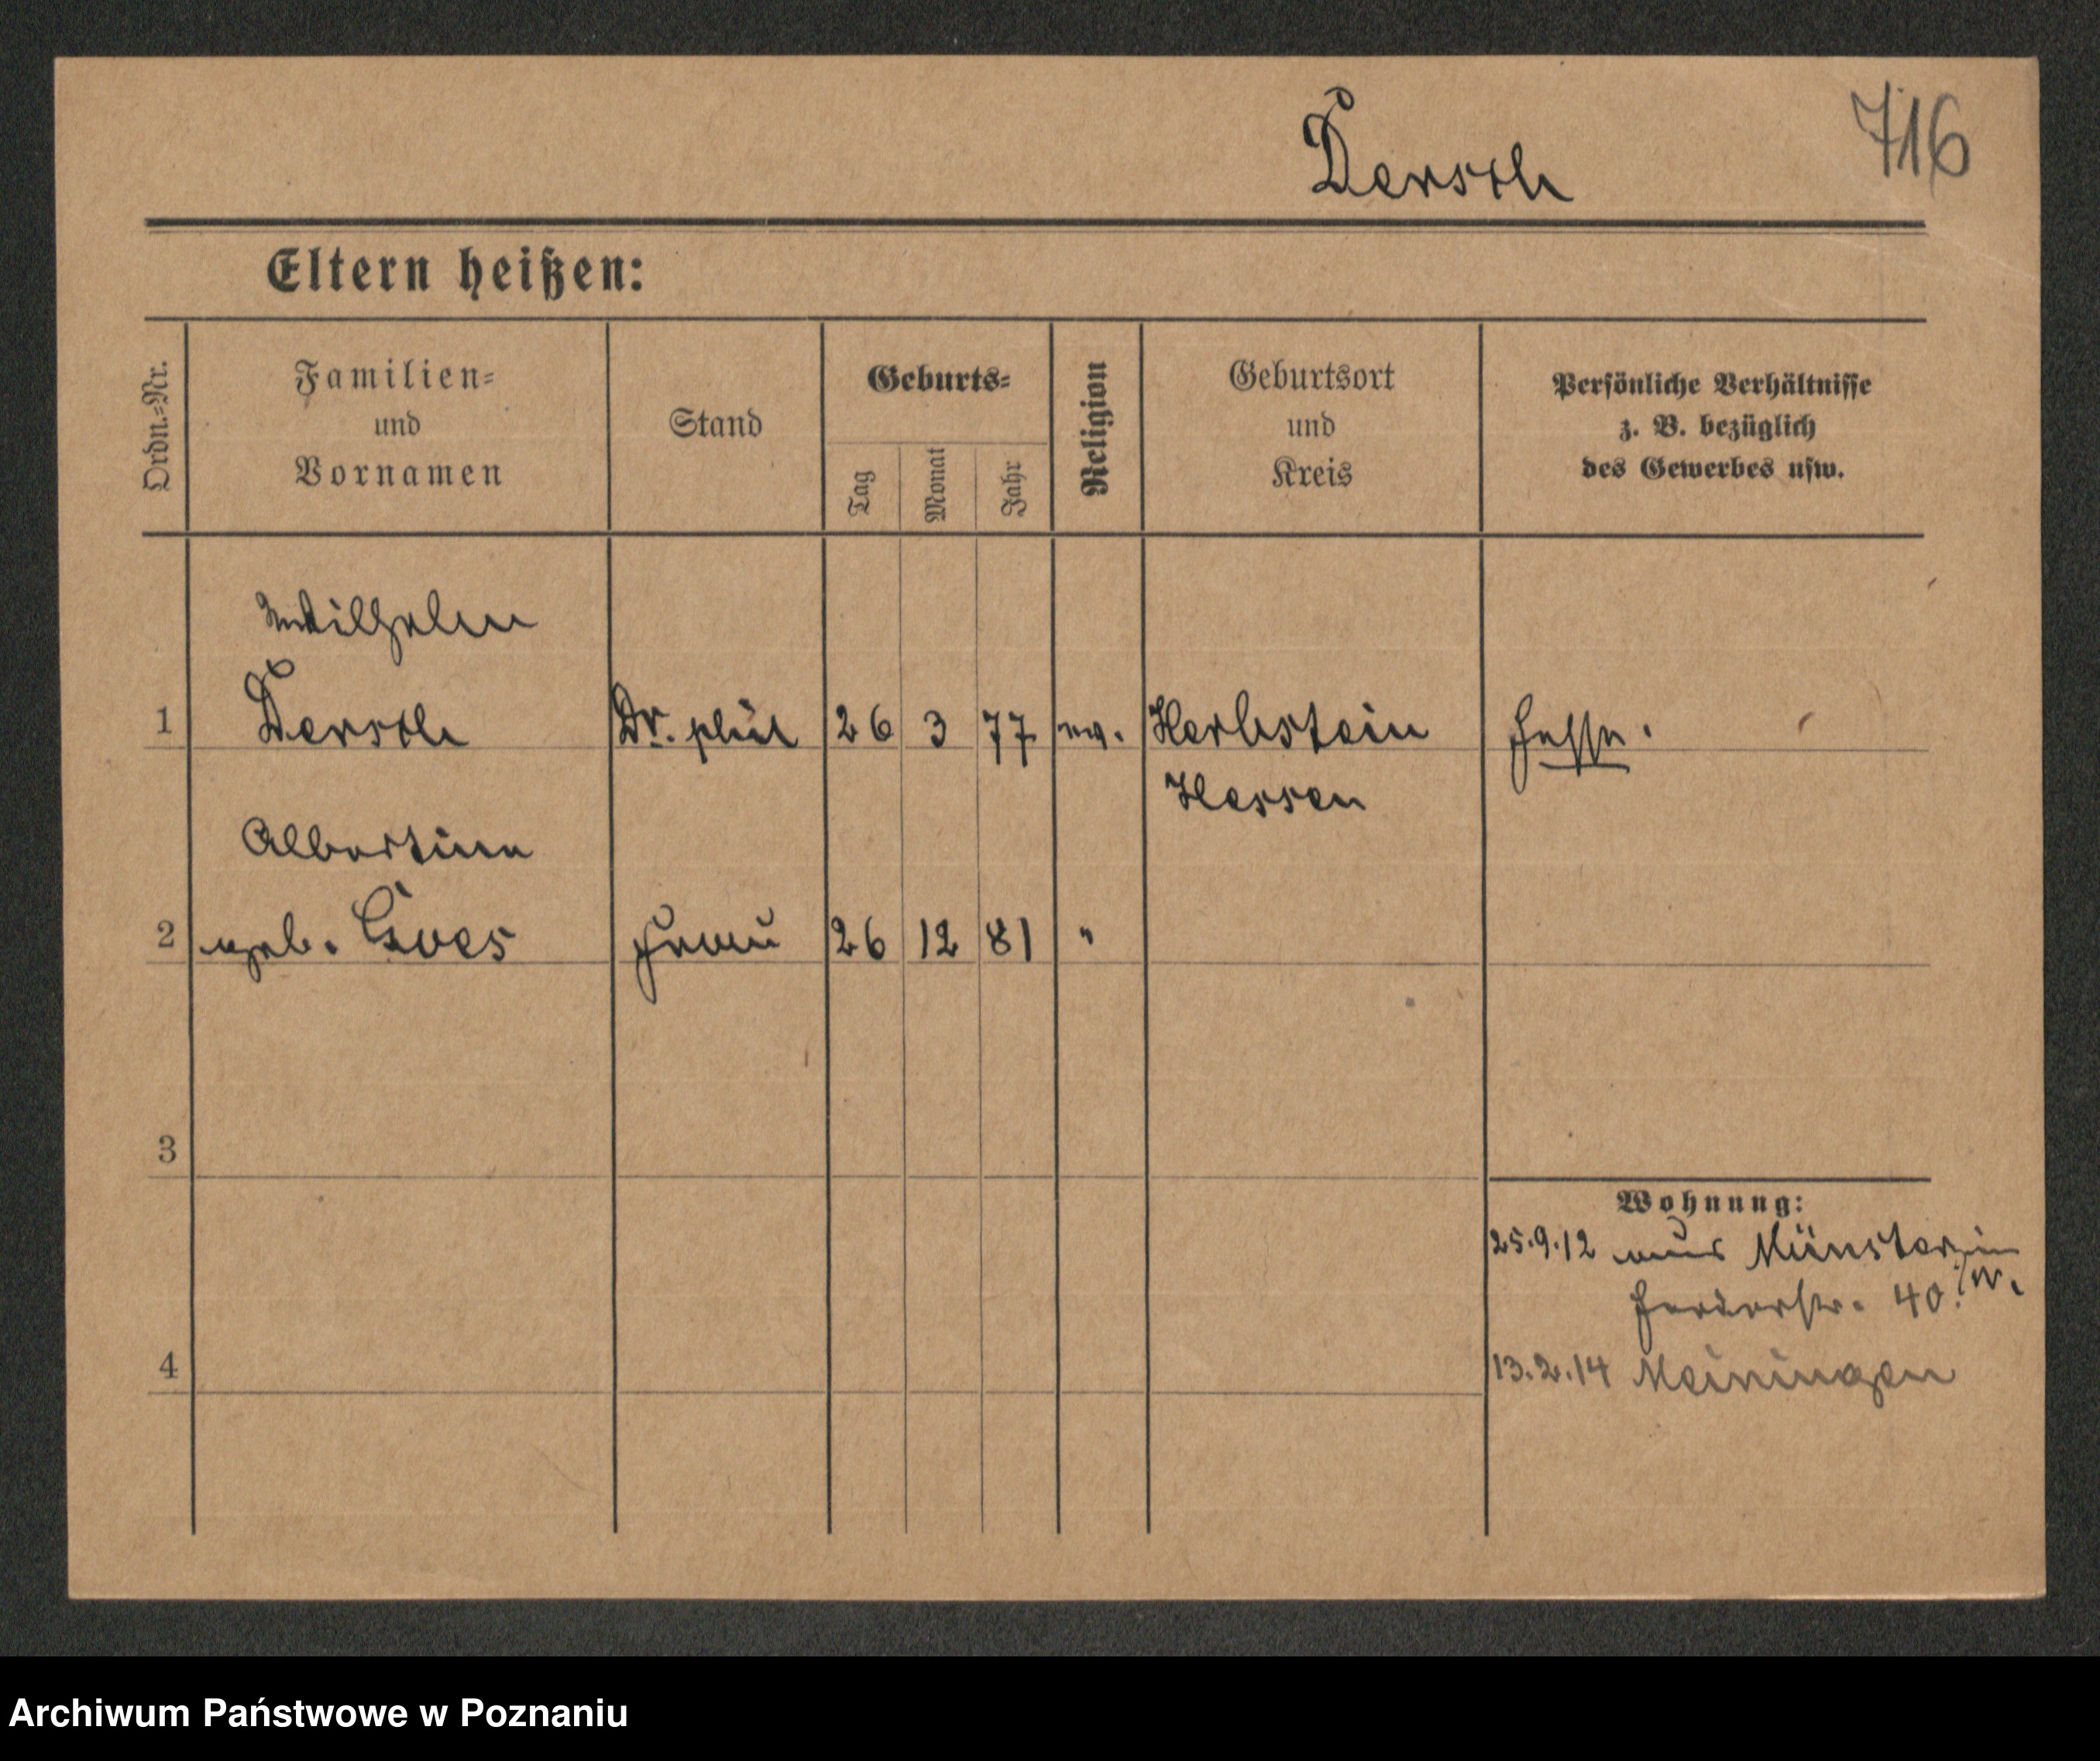 716
Dersch
Eltern heißen:
Ordn.-Nr.
Familien-
und
Vornamen
Stand
Geburts-
Tag
Monat
Jahr
Religion
Geburtsort
und
Kreis
Persönliche Verhältnisse
z. B. bezüglich
des Gewerbes usw.
Wilhelm
1 Dersch Dr. phil 26 3 77 ev. Herbstein Hesse.
Hessen
Albertine
2 geb. Goes Frau 26 12 81 "
3
Wohnung:
25.9.12 aus Münster in
W.
Herderstr. 40.
4
13.2.14 Meiningen
Archiwum Państwowe w Poznaniu